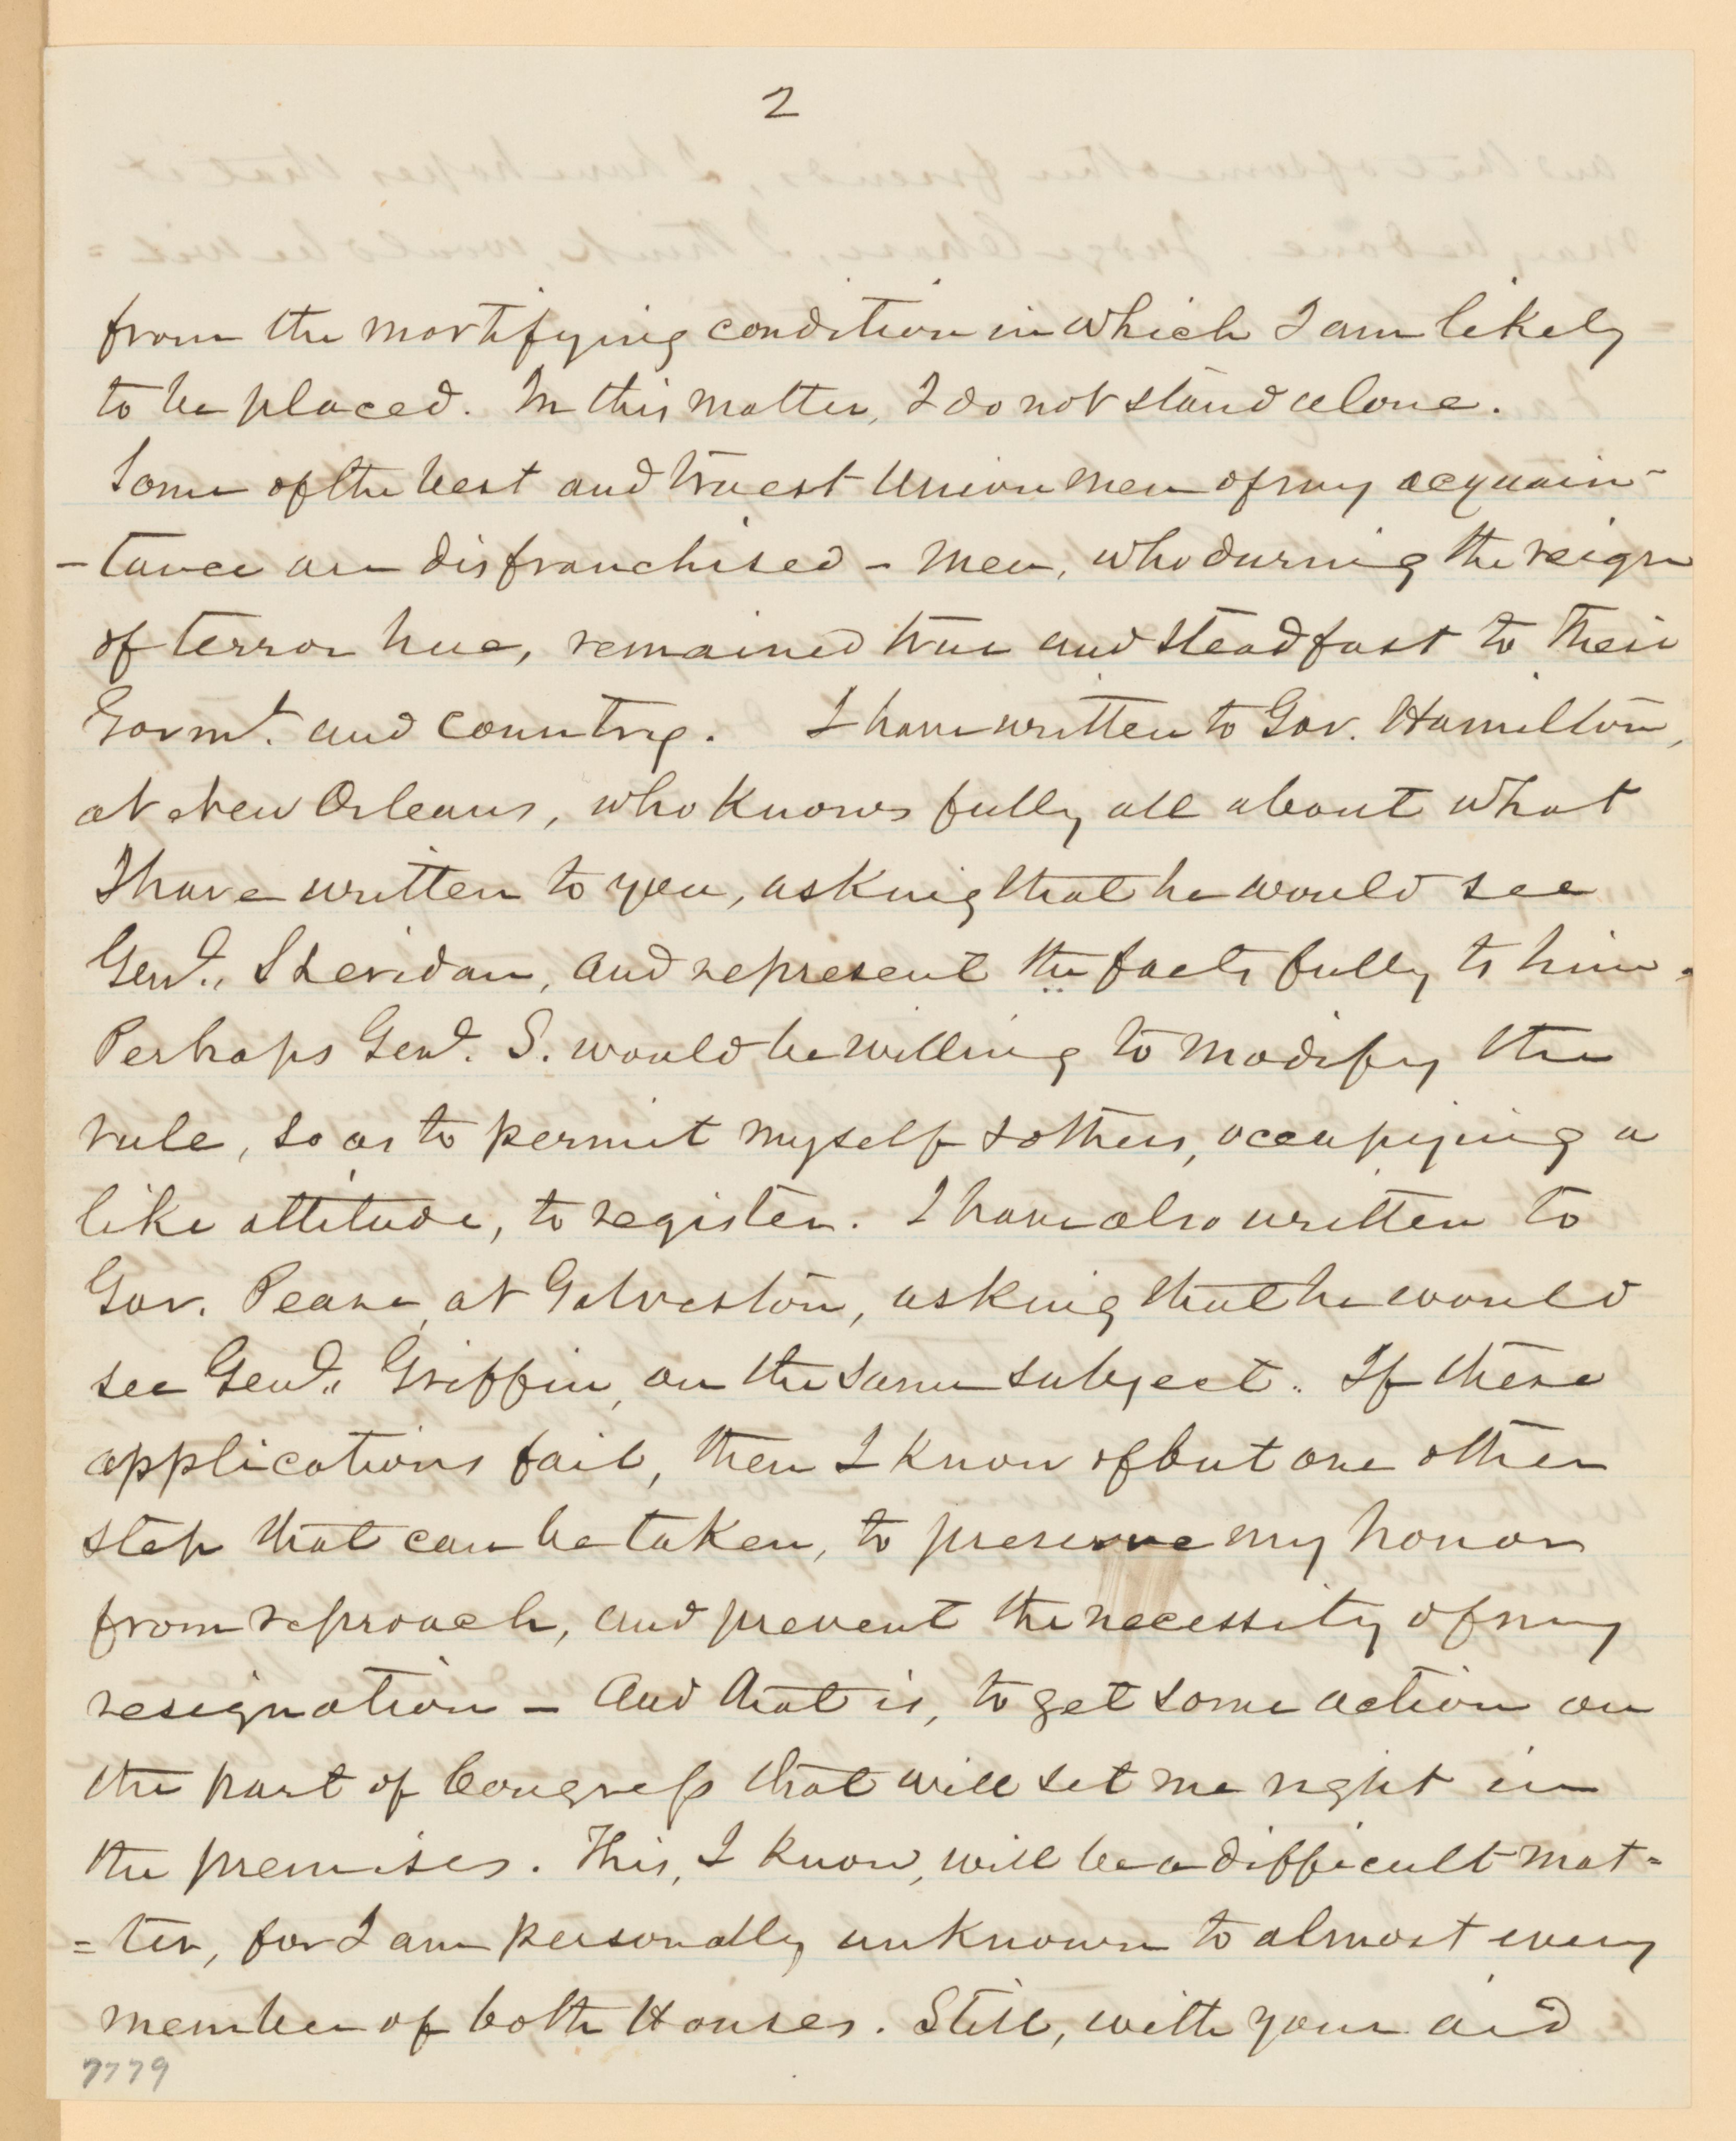 2
from the mortifying condition in which I am likely
to be placed. In this matter, I do not stand alone.
Some of the best and truest Union men of my acquain-
-tance are disfranchised - men, who during the reign
of terror here, remained true and steadfast to their
Govmt. and country. I have written to Gov. Hamilton,
at New Orleans, who knows fully all about what
I have written to you, asking that he would see
Genl., Sheridan, and represent the facts fully to him.
Perhaps Genl. S. would be willing to modify the
rule, so as to permit myself & others, occupying a
like attitude, to register. I have also written to
Gov. Pease, at Galveston, asking that he would
see Genl., Griffin, on the same subject. If these
applications fail, then I know of but one other
step that can be taken, to preserve my honor
from reproach, and prevent the necessity of my
resignation - And that is, to get some action on
the part of Congress that will set me right in
the premises. This, I know, will be a difficult mat=
=ter, for I am personally unknown to almost every
member of both Houses. Still, with your aid
7779